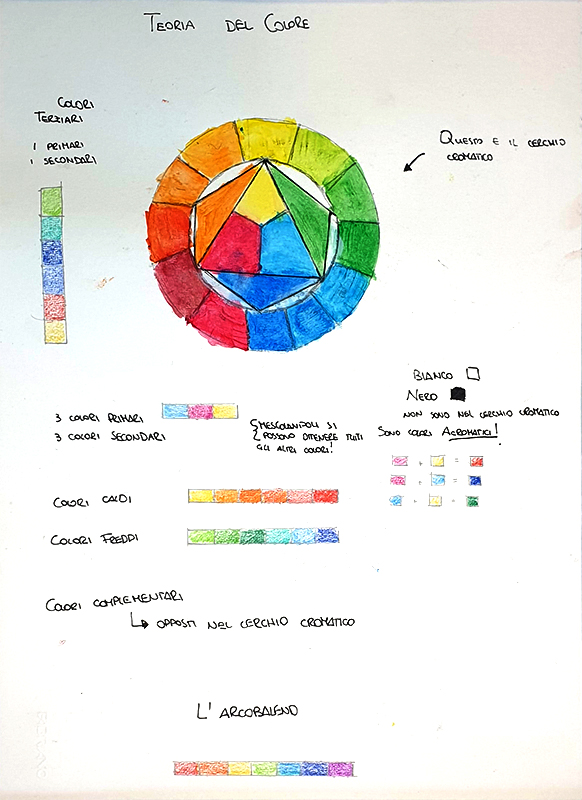 TEORIA DEL COLORE
COLORI
TERZIARI
1 PRIMARI
1 SECONDARI
QUESTO E IL CERCHIO
CROMATICO
BIANCO
NERO
NON SONO NEL CERCHIO CROMATICO
SONO COLORI ACROMATICI!
3 COLORI PRIMARI
3 COLORI SECONDARI
MESCOLANDOLI SI
POSSONO OTTENERE TUTTI
GLI ALTRI COLORI!
+ =
+ =
+ =
COLORI CALDI
COLORI FREDDI
COLORI COMPLEMENTARI
OPPOSTI NEL CERCHIO CROMATICO
L'ARCOBALENO